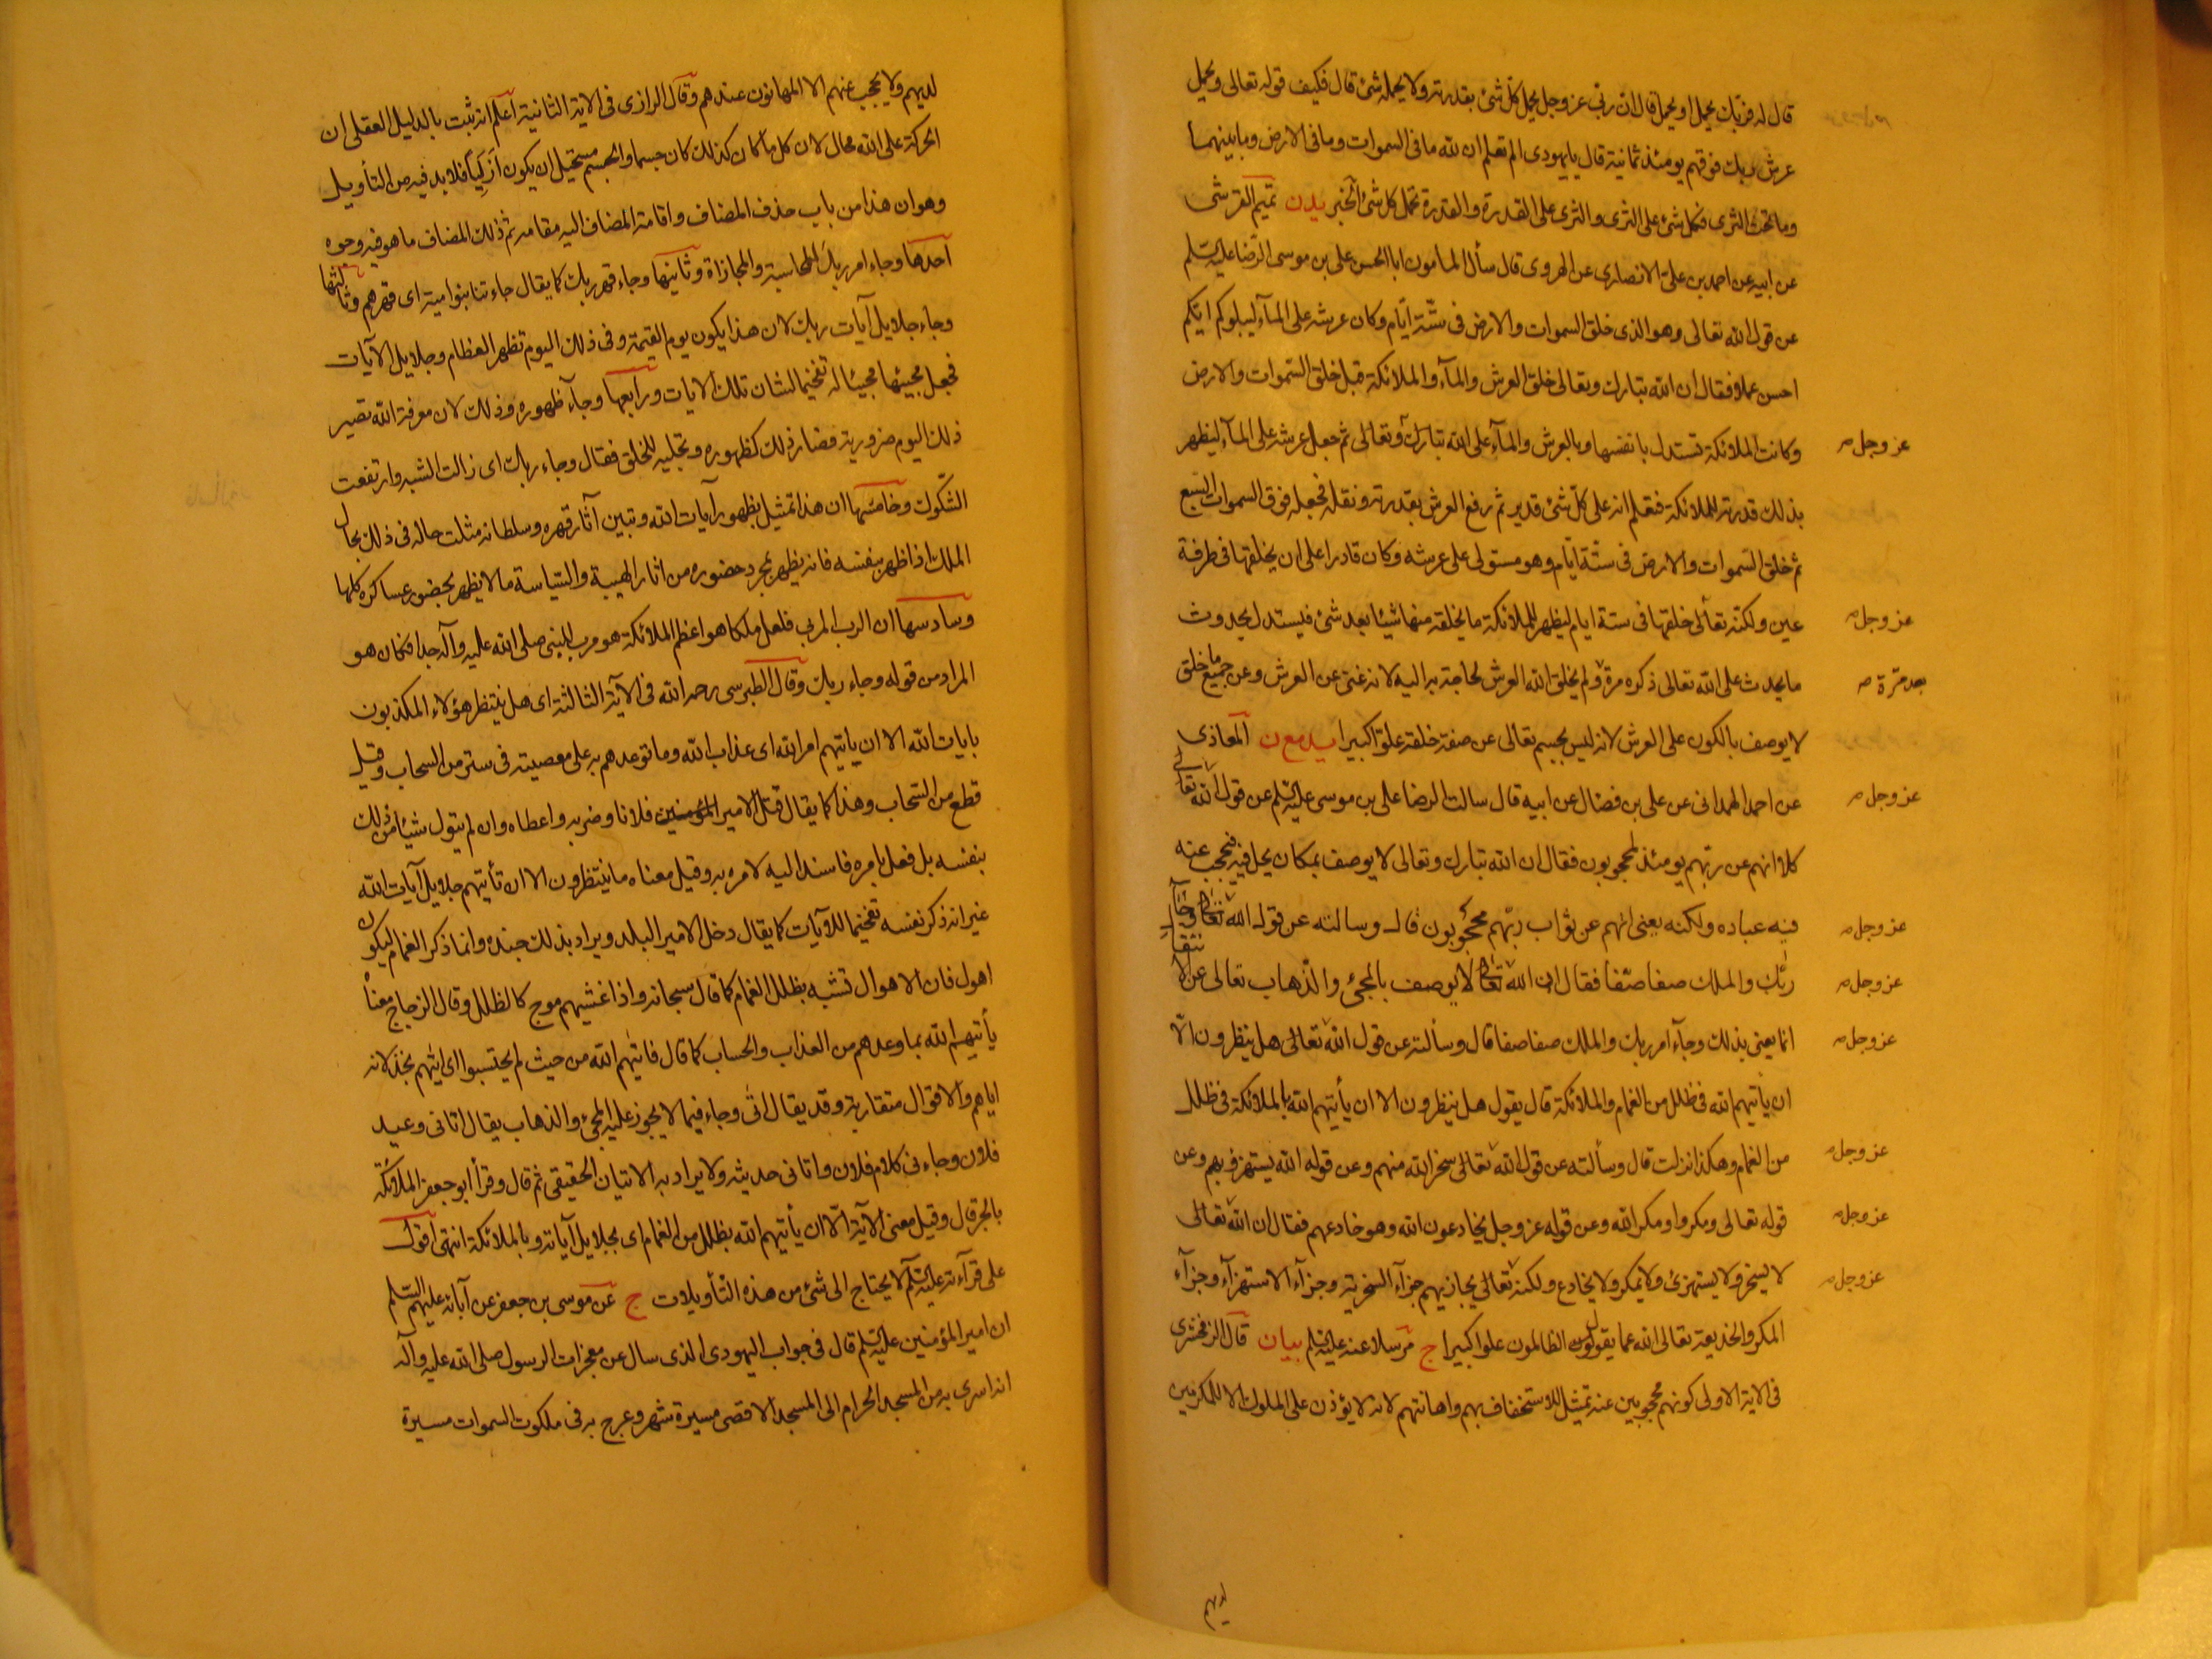 قال له فربك يحمل او يحمل قال ان ربي عز وجل يحمل كل شئ بقدرته ولا يحمله شئ قال فكيف قوله تعالى ويحمل
عرش ربك فوقهم يومئذ ثمانية قال يا يهودى الم تعلم ان لله ما فى السموات وما فى الارض وما بينهما
وما تحت الثرى فكل شئ على الثرى والثرى على القدرة والقدرة تحمل كل شئ الخبر يد ن تميم القرشى
عن ابيه عن احمد بن على الانصارى عن الهروى قال سأل المامون ابا الحسن على بن موسى الرضا عليه السلم
عن قول الله تعالى وهو الذى خلق السموات والارض فى ستة ايام وكان عرشه على الماء ليبلوكم ايكم
احسن عملا فقال ان الله تبارك وتعالى خلق العرش والماء والملائكة قبل خلق السموات والارض
وكانت الملائكة تستدل بانفسها وبالعرش والماء على الله تبارك وتعالى ثم جعل عرشه على الماء ليظهر
عز وجل صح
بذلك قدرته للملائكة فتعلم انه على كل شئ قدير ثم رفع العرش بقدرته ونقله فجعله فوق السموات السبع
ثم خلق السموات والارض فى ستة ايام وهو مستولى على عرشه وكان قادرا على ان يخلقها فى طرفة
عين ولكنه تعالى خلقها فى ستة ايام ليظهر للملائكة ما يخلقه منها شيئا بعد شئ فيستدل بحدوث
عز وجل صح
ما يحدث على الله تعالى ذكره مرة ولم يخلق الله العرش لحاجة به اليه لانه غنى عن العرش وعن جميع ما خلق
بعد مرة صح
لا يوصف بالكون على العرش لانه ليس بجسم تعالى عن صفة خلقه علوا كبيرا يد مع ن المعاذى
عن احمد الهمدانى عن على بن فضال عن ابيه قال سالت الرضا على بن موسى عليه السلم عن قول الله تعالى
عز وجل صح
كلا انهم عن ربهم يومئذ لمحجوبون فقال ان الله تبارك وتعالى لا يوصف بمكان يحل فيه فيحجب عنه
فيه عباده ولكنه يعنى انهم عن ثواب ربهم محجوبون قال وسالته عن قول الله تعالى وجاء
عز وجل صح
ربك والملك صفا صفا فقال ان الله تعالى لا يوصف بالمجئ والذهاب تعالى عن الانتقال
عز وجل صح
انما يعنى بذلك وجاء امر ربك والملك صفا صفا قال وسألته عن قول الله تعالى هل ينظرون الا
عز وجل صح
ان يأتيهم الله فى ظلل من الغمام والملائكة قال يقول هل ينظرون الا ان يأتيهم الله بالملائكة فى ظلل
من الغمام وهكذا نزلت قال وسألته عن قول الله تعالى سخر الله منهم وعن قوله الله يستهزئ بهم وعن
عز وجل صح
قوله تعالى ومكروا ومكر الله وعن قوله عز وجل يخادعون الله وهو خادعهم فقال ان الله تعالى
عز وجل صح
لا يسخر ولا يستهزئ ولا يمكر ولا يخادع ولكنه تعالى يجازيهم جزاء السخرية وجزاء الاستهزاء وجزاء
عز وجل صح
المكر والخديعة تعالى الله عما يقول الظالمون علوا كبيرا ج مرسلا عنه عليه السلم بيان قال الزمخشرى
فى الاية الاولى كونهم محجوبين عنه تمثيل للاستخفاف بهم واهانتهم لانه لا يؤذن على الملوك الا للمكرمين
لديهم
لديهم ولا يحجب عنهم الا المهانون عندهم وقال الرازى فى الاية الثانية اعلم انه ثبت بالدليل العقلى ان
الحركة على الله محال لان كل ما كان كذلك كان جسما والجسم مستحيل ان يكون ازليا فلا بد فيه من التأويل
وهو ان هذا من باب حذف المضاف واقامة المضاف اليه مقامه ثم ذلك المضاف ما هو فيه وجوه
احدها وجاء امر ربك للمحاسبة والمجازاة وثانيها وجاء قهر ربك كما يقال جاءتنا بنو امية اى قهرهم وثالثها
وجاء جلايل آيات ربك لان هذا يكون يوم القيمة وفى ذلك اليوم تظهر العظام وجلايل الآيات
فجعل مجيئها مجيئا له تفخيما لشان تلك الايات ورابعها وجاء ظهوره وذلك لان معرفة الله تصير
ذلك اليوم ضرورية فصار ذلك كظهوره وتجليه للخلق فقال وجاء ربك اى زالت الشبه وارتفعت
الشكوك وخامسها ان هذا تمثيل بظهور آيات الله وتبين آثار قهره وسلطانه مثلت حاله فى ذلك بحال
الملك اذا ظهر بنفسه فانه يظهر بمجرد حضوره من اثار الهيبة والسياسة ما لا يظهر بحضور عساكره كلها
وسادسها ان الرب المربى فلعل ملكا هو اعظم الملائكة هو مرب للنبى صلى الله عليه وآله جدا فكان هو
المراد من قوله وجاء ربك وقال الطبرسى رحمه الله فى الآية الثالثة اى هل ينتظر هؤلاء المكذبون
بايات الله الا ان ياتيهم امر الله اى عذاب الله وما توعدهم به على معصيته فى ستر من السحاب وقيل
قطع من السحاب وهذا كما يقال قتل الامير المؤمنين فلانا وضربه واعطاه وان لم يتول شيئا من ذلك
بنفسه بل فعل بامره فاسند اليه لامره به وقيل معناه ما ينتظرون الا ان تأتيهم جلايل آيات الله
غير انه ذكر نفسه تفخيما للآيات كما يقال دخل الامير البلد ويراد بذلك جنده وانما ذكر الغمام ليكون
اهول فان الاهوال تشبه بظلل الغمام كما قال سبحانه واذا غشيهم موج كالظلل وقال الزجاج معناه
يأتيهم الله بما وعدهم من العذاب والحساب كما قال فاتيهم الله من حيث لم يحتسبوا اى اتيهم بخذلانه
اياهم والاقوال متقاربة وقد يقال اتى وجاء فيما لا يجوز عليه المجئ والذهاب يقال اتانى وعيد
فلان وجاءنى كلام فلان واتانى حديثه ولا يراد به الاتيان الحقيقى ثم قال وقرأ ابو جعفر الملائكة
بالجر قال وقيل معنى الآية الا ان يأتيهم الله بظلل من الغمام اى بجلايل آياته وبالملائكة انتهى اقول
على قراءته عليه السلم لا يحتاج الى شئ من هذه التأويلات ج عن موسى بن جعفر عن آبائه عليهم السلم
ان امير المؤمنين عليه السلم قال فى جواب اليهودى الذى سال عن معجزات الرسول صلى الله عليه وآله
انه اسرى به من المسجد الحرام الى المسجد الاقصى مسيرة شهر وعرج به فى ملكوت السموات مسيرة